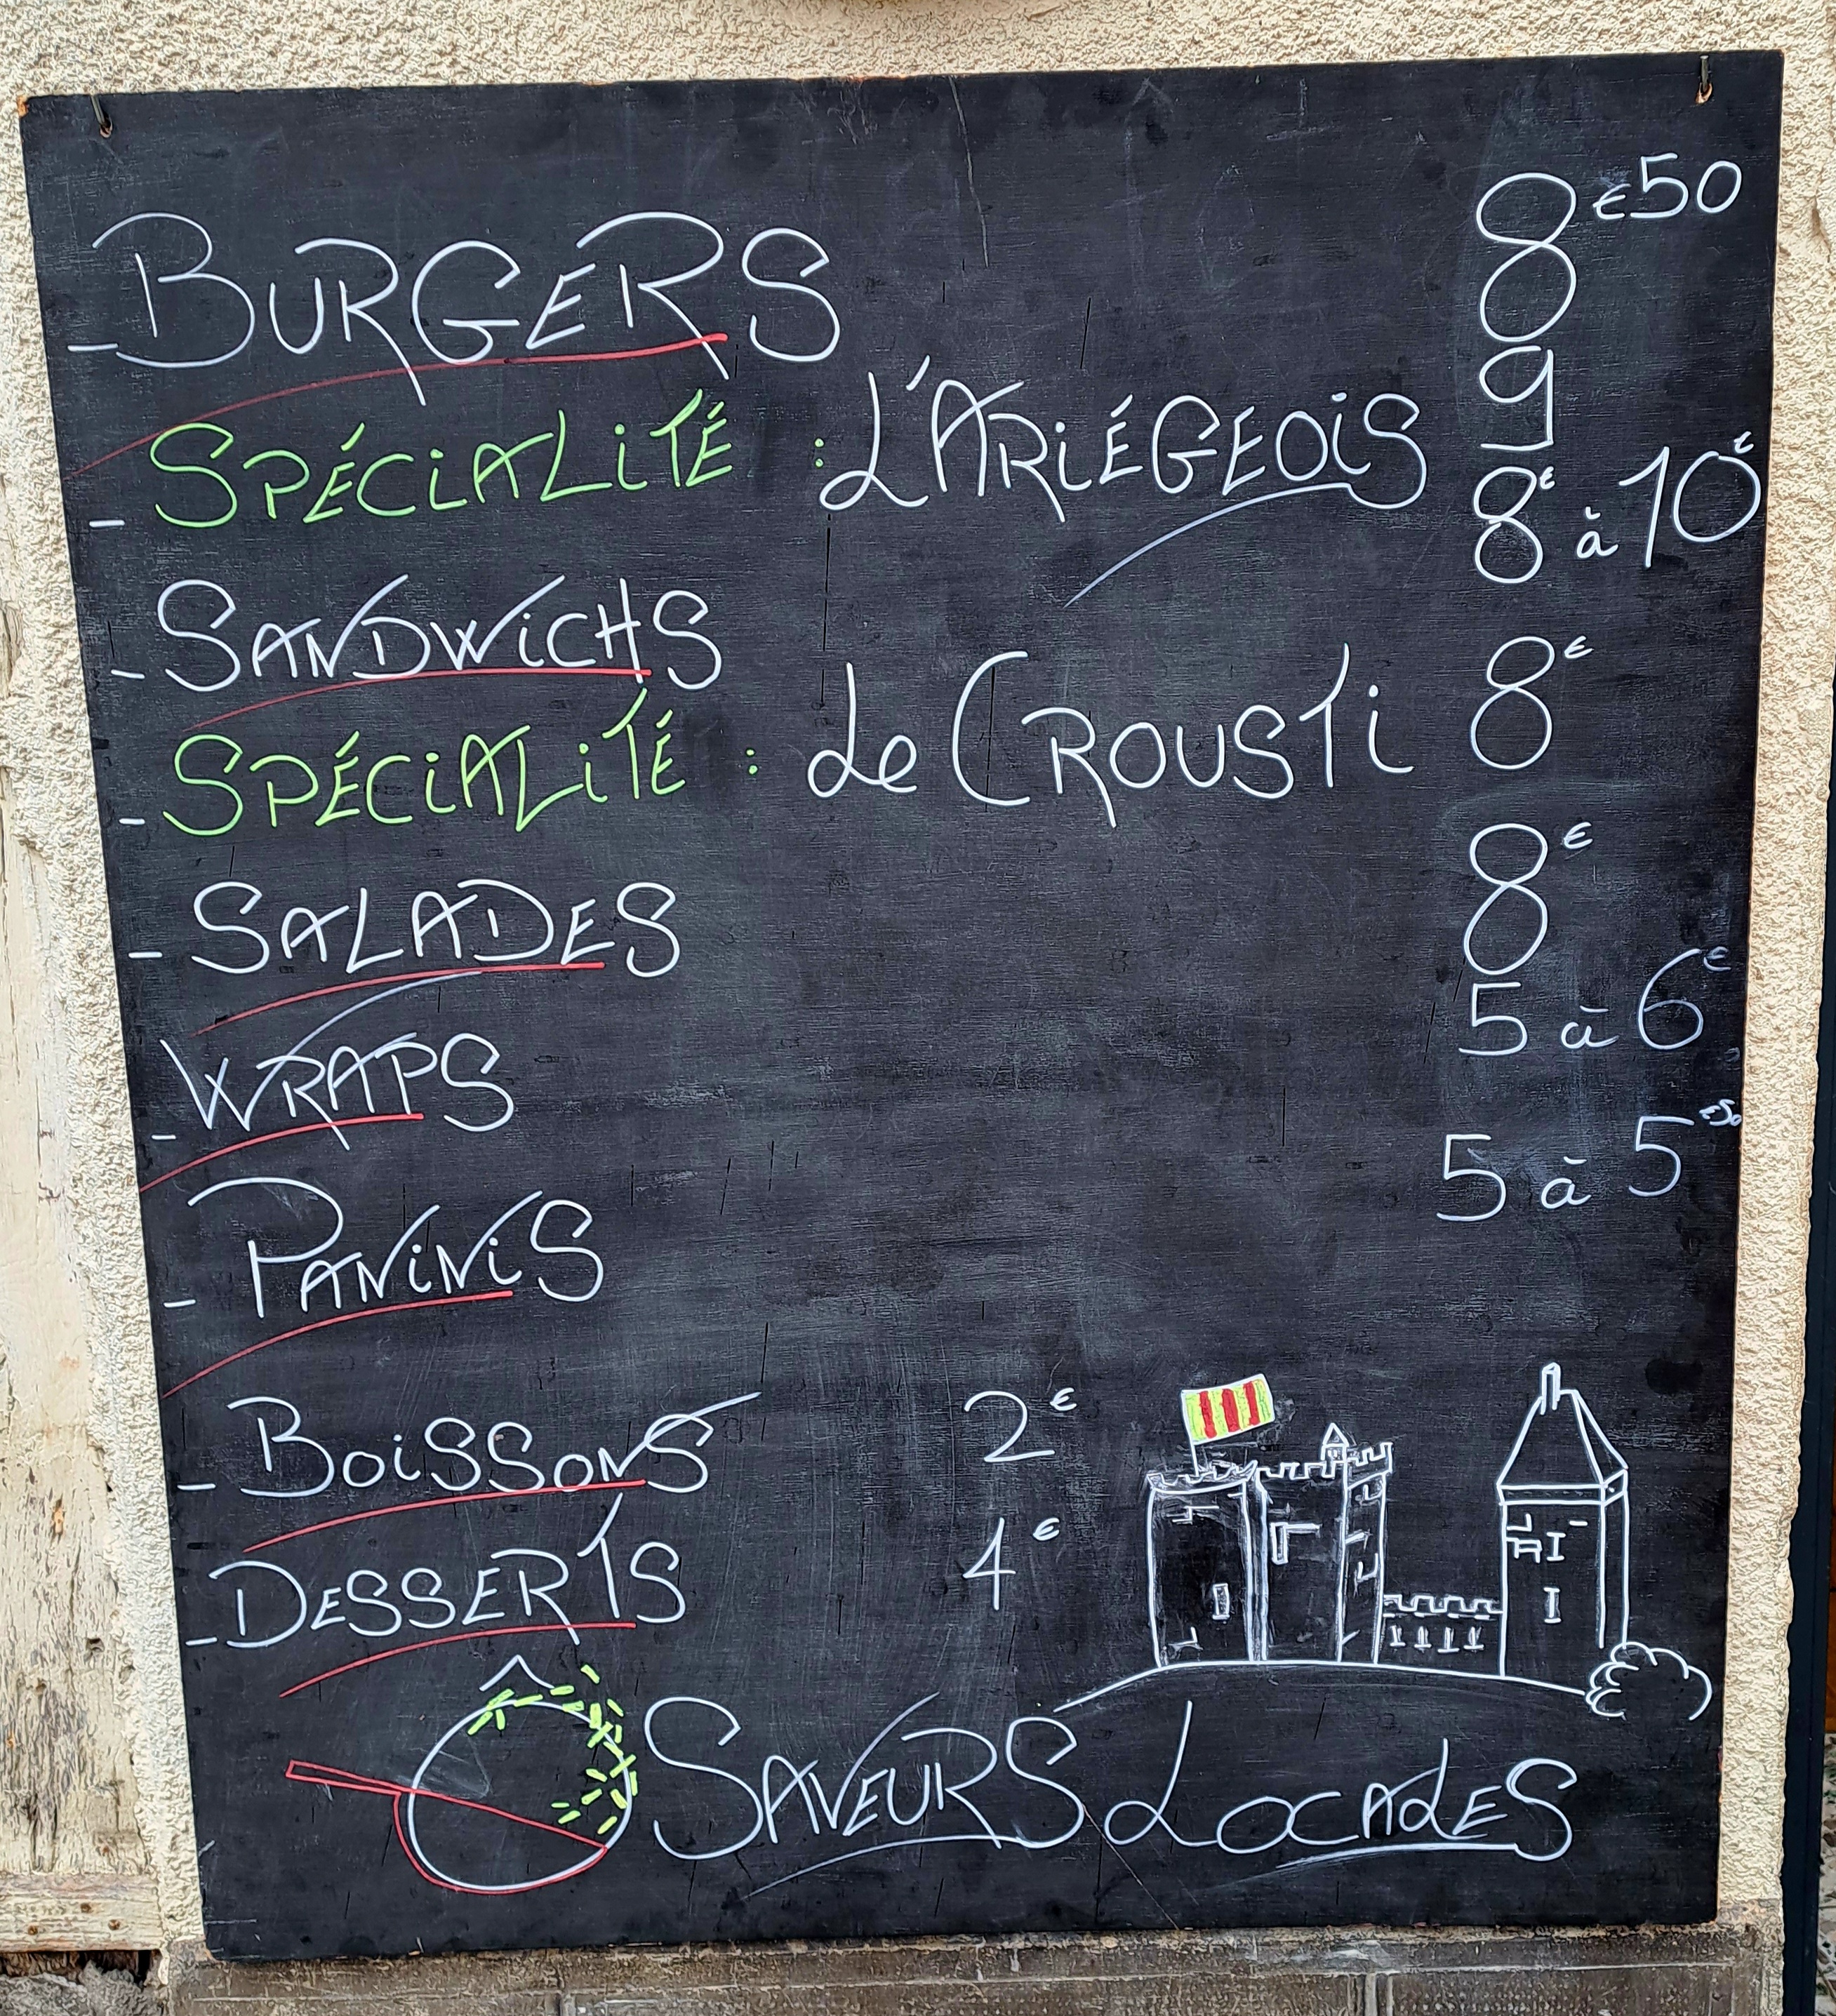 - BURGERS 8€50
- SPÉCIALITÉ : L'ARIÉGEOIS 9
- SANDWICHS 8€ à 10€
- SPÉCIALITÉ : Le CROUSTI 8€
- SALADES 8€
- WRAPS 5 à 6€
- PANINIS 5 à 5€50
- BOISSONS 2€
- DESSERTS 4€
SAVEURS LOCALES